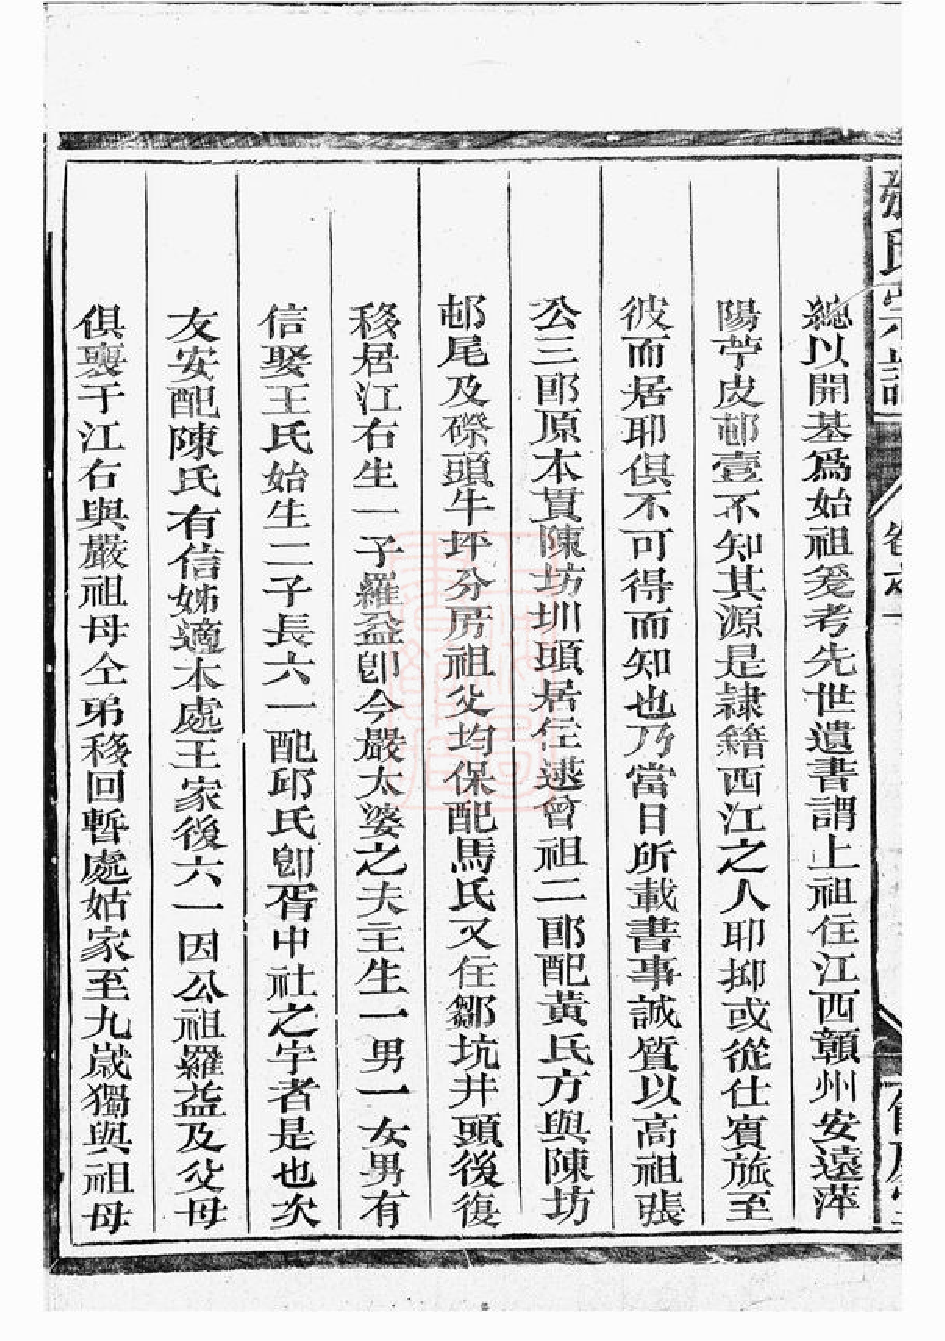 張氏宗譜 卷之一
總以開基爲始祖爰考先世遺書謂上祖住江西贛州安遠萍
陽苧皮邨壹不知其源是隷籍西江之人耶抑或從仕賓旅至
彼而居耶俱不可得而知也乃當日所載書事誠質以高祖張
公三郎原本貫陳坊圳頭居住逮曾祖二郎配黃氏方與陳坊
邨尾及磜頭牛坪分房祖父均保配馬氏又住鄒坑井頭後復
移居江右生一子羅益卽今嚴太婆之夫主生一男一女男有
信娶王氏始生二子長六一配邱氏卽胥中社之字者是也次
友安配陳氏有信姊適本處王家後六一因公祖羅益及父母
俱喪于江右與嚴祖母仝弟移回暫處姑家至九歲獨與祖母